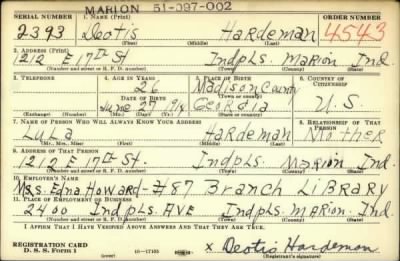 MARION 51-097-002
SERIAL NUMBER 1. NAME (Print) ORDER NUMBER
2393 Deotis Hardeman 4543
(First) (Middle) (Last)
2. ADDRESS (Print)
1212 E 17th St Indpls. Marion Ind
(Number and street or R. F. D. number) (Town) (County) (State)
3. TELEPHONE 4. AGE IN YEARS 5. PLACE OF BIRTH 6. COUNTRY OF CITIZENSHIP
26 Madison County
DATE OF BIRTH (Town or county)
June 27 1914 Georgia U.S.
(Exchange) (Number) (Mo.) (Day) (Yr.) (State or country)
7. NAME OF PERSON WHO WILL ALWAYS KNOW YOUR ADDRESS 8. RELATIONSHIP OF THAT PERSON
Lula Hardeman Mother
(Mr., Mrs., Miss) (First) (Middle) (Last)
9. ADDRESS OF THAT PERSON
1212 E 17th St. Indpls. Marion Ind.
(Number and street or R. F. D. number) (Town) (County) (State)
10. EMPLOYER'S NAME
Mrs. Edna Howard - #87 Branch Library
11. PLACE OF EMPLOYMENT OR BUSINESS
2400 Indpls. Ave Indpls. Marion. Ind
(Number and street or R. F. D. number) (Town) (County) (State)
I AFFIRM THAT I HAVE VERIFIED ABOVE ANSWERS AND THAT THEY ARE TRUE.
REGISTRATION CARD
D. S. S. Form 1 (over) 16-17105 x Deotis Hardeman
(Registrant's signature)